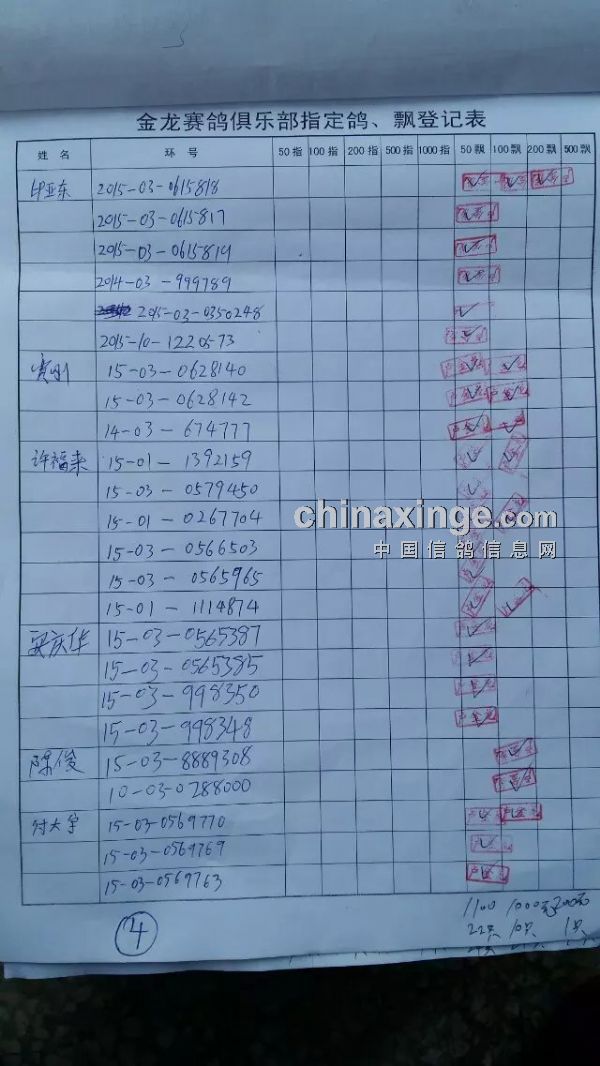 金龙赛鸽俱乐部指定鸽、飘登记表
姓名 环号 50指 100指 200指 500指 1000指 50飘 100飘 200飘 500飘
印亚东 2015-03-0615818
2015-03-0615817
2015-03-0615819
2014-03-999789
2015-03-0350248
2015-10-1220573
15-03-0628140
15-03-0628142
14-03-674777
许福来 15-01-1392159
15-03-0579450
15-01-0267704
chinaxinge.com
15-03-0566503
中国信鸽信息网
15-03-0565965
15-01-1114874
庆华 15-03-0565387
15-03-0565385
15-03-998350
15-03-998348
陈俊 15-03-8889308
10-03-0288000
付大宇 15-03-0569770
15-03-0569769
15-03-0569763
1100 1000元 200元
22只 10只 1只
④